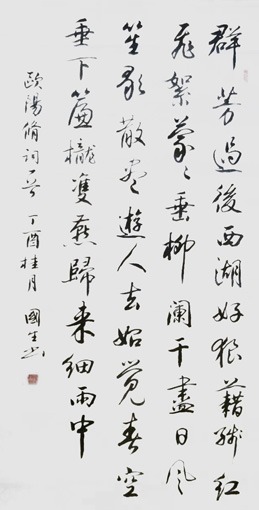 群芳過後西湖好狼藉殘紅
飛絮蒙々垂柳闌干盡日風
笙歌散盡遊人去始覺春空
垂下簾櫳雙燕歸来細雨中
歐陽脩詞一首 丁酉桂月 國生书